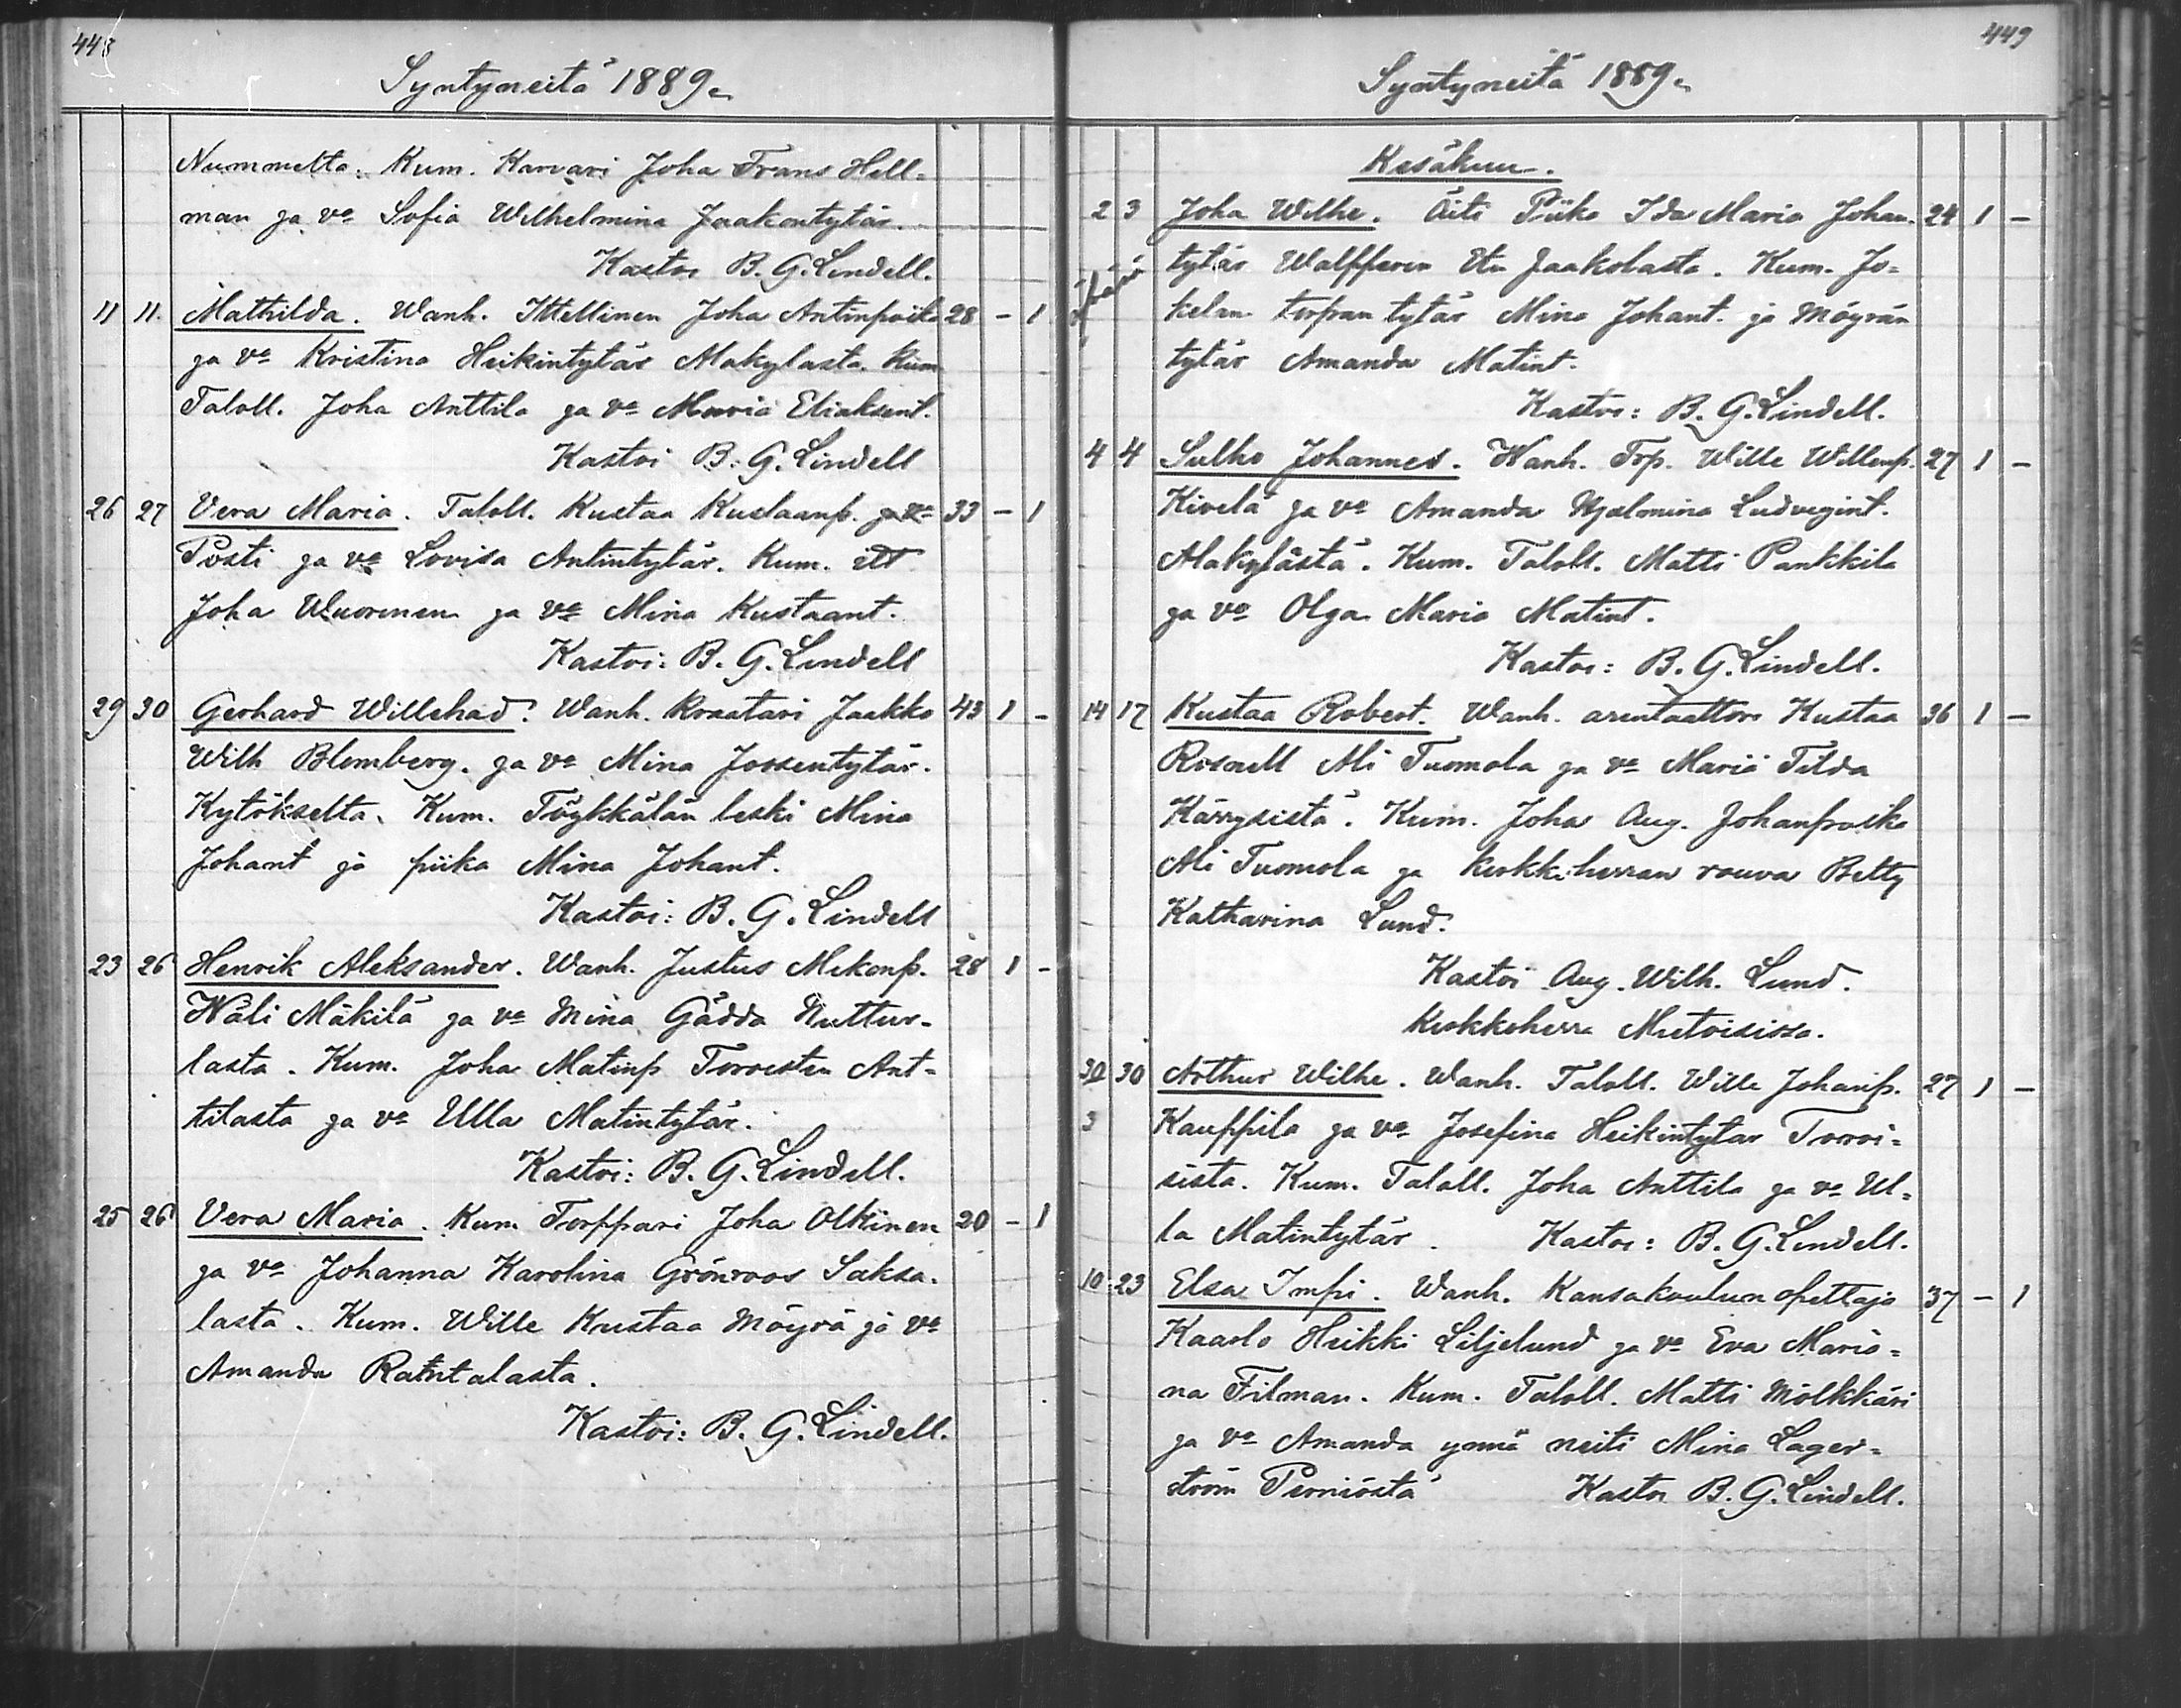 448
Syntyneitä 1889.
Nummelta. Kum. Karvari Joha Frans Hell-
man ja vo Sofia Wilhelmina Jaakontytär.
Kastoi B. G. Lindell.
11 11. Mathilda. Wanh. Ittellinen Joha Antinpoika 28 - 1
ja vo Kristina Heikintytär Alakylasta. Kum
Taloll. Joha Anttila ja vo Maria Eliaksent.
Kastoi B. G. Lindell
26 27 Vera Maria. Taloll. Kustaa Kustaanp. ja vo 33 - 1
Posti ja vo Lovisa Antintytär. Kum. itt
Joha Wuorinen ja vo Mina Kustaant.
Kastoi: B. G. Lindell
29 30 Gerhard Willehad. Wanh. Kraatari Jaakko 43 1 -
Wilh Blomberg. ja vo Mina Joosentytär.
Kytökselta. Kum. Töykkälän leski Mina
Johant ja piika Mina Johant.
Kastoi: B. G. Lindell
23 26 Henrik Aleksander. Wanh. Justus Mikonp. 28 1 -
Wäli Mäkilä ja vo Mina Gädda Nuttur-
lasta. Kum. Joha Matinp Torrsten Ant-
tilasta ja vo Ulla Matintytär.
Kastoi: B. G. Lindell.
25 26 Vera Maria. Kum Torppari Joha Olkinen 20 - 1
ja vo Johanna Karolina Grönroos Saksa-
lasta. Kum. Wille Kustaa Möyrä ja vo
Amanda Rantalasta.
Kastoi: B. G. Lindell.
449
Syntyneitä 1889.
Kesäkuu.
2 3 Joha Wilhe. Äiti Piika Ida Maria Johan- 24 1 -
tytär Walfferin Jaakolasta. Kum. Jo-
kelan torpan tytär Mina Johant. ja Möyrän
tytär Amanda Matint.
Kastoi: B. G. Lindell.
4 4 Sulho Johannes. Wanh. Torp. Wille Willenp. 27 1 -
Kivelä ja vo Amanda Hjalmina Ludvigint.
Alakylästä. Kum. Taloll. Matti Pankkila
ja vo Olga Maria Matint.
Kastoi: B. G. Lindell.
14 17 Kustaa Robert. Wanh. arentaattori Kustaa 36 1 -
Rosnell Ali Tuomola ja vo Maria Tilda
Kärrysistä. Kum. Joha Aug. Johanpoika
Ali Tuomola ja kirkkiherran rouva Betty
Katharina Lund.
Kastoi Aug. Wilh. Lund.
Kirkkoherra Mietoisissa.
30 30 Arthur Wilhe. Wanh. Taloll. Wille Johanp. 27 1 -
3 Kauppila ja vo Josefina Heikintytar Tvoroi-
sista. Kum. Taloll. Joha Anttila ja vo Ul-
la Matintytär. Kastoi: B. G. Lindell.
10 23 Elsa Impi. Wanh. Kansakoulun opettaja 37 - 1
Kaarlo Heikki Liljelund ja vo Eva Maria-
na Filman. Kum. Taloll. Matti Mölkkäri
ja vo Amanda ynnä neiti Mina Lager-
ström Perniöstä Kastoi B. G. Lindell.